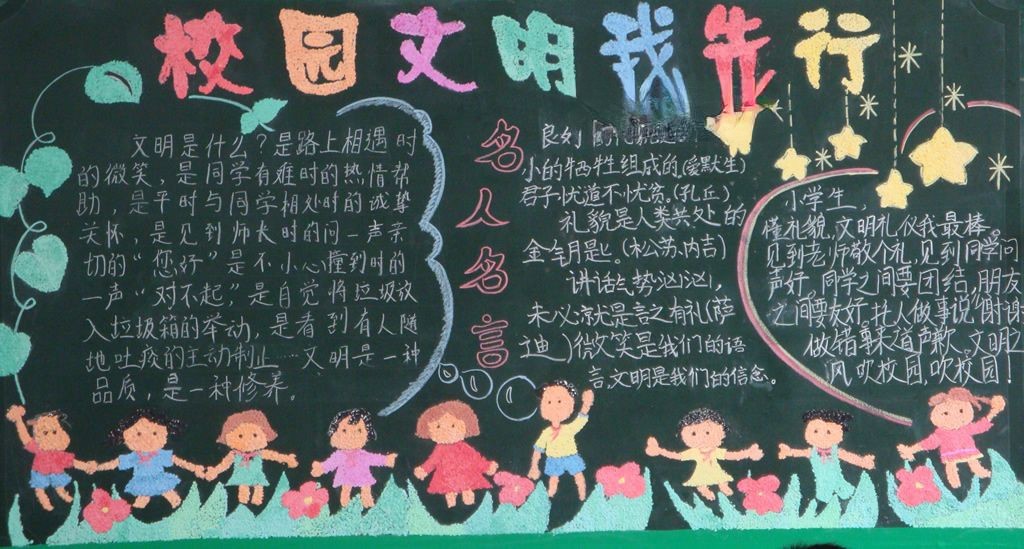 校园文明我先行
文明是什么？是路上相遇时
的微笑，是同学有难时的热情帮
助，是平时与同学相处时的诚挚
关怀，是见到师长时的问一声亲
切的“您好”是不小心撞到时的
一声“对不起，”是自觉将垃圾放
入垃圾箱的举动，是看到有人随
地吐痰的主动制止……文明是一种
品质，是一种修养。
名人名言
良好
小的牺牲组成的(爱默生)
君子忧道不忧贫。(孔丘)
礼貌是人类共处的
金钥匙。(松苏内吉)
讲话气势汹汹，
未必就是言之有礼(萨
迪)微笑是我们的语
言，文明是我们的信念。
小学生，
懂礼貌，文明礼仪我最棒。
见到老师敬个礼，见到同学问
声好，同学之间要团结，朋友
之间要友好，托人做事说“谢谢
做错事来道声歉。文明之
风吹校园，吹校园！